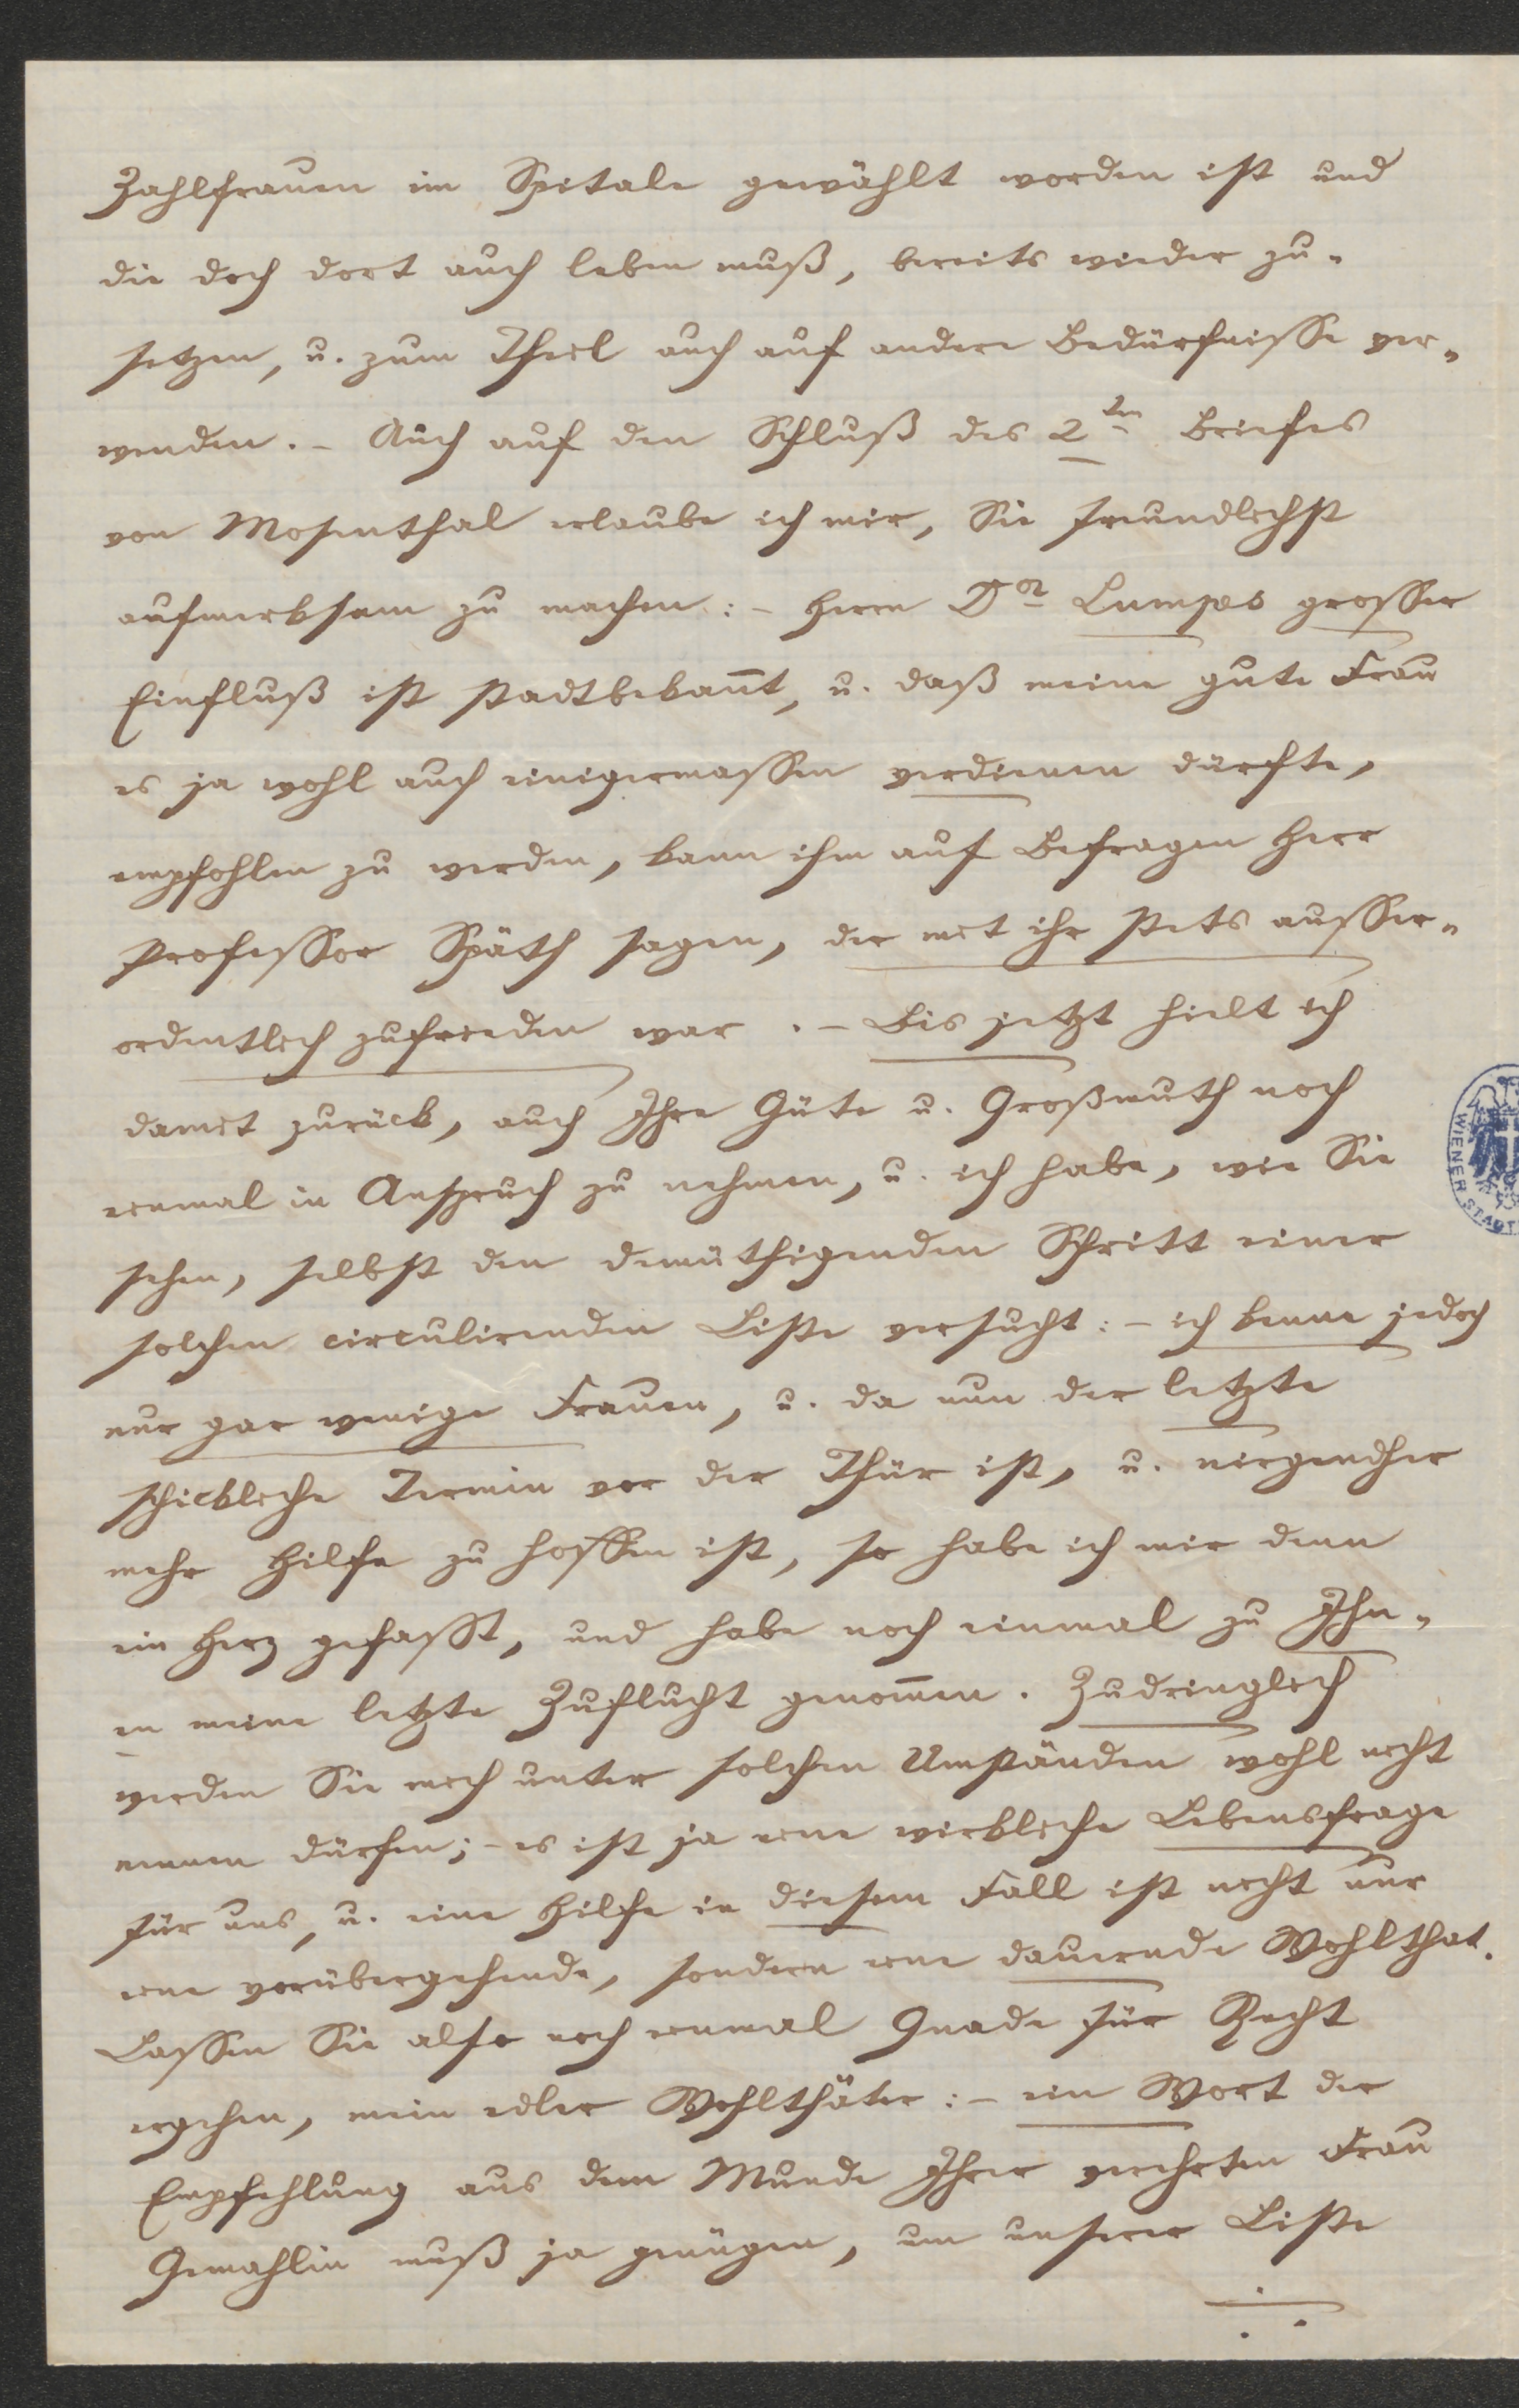 Zahlfrauen im Spitale gewählt worden ist und
die doch dort auch leben muß, bereits wieder zu-
setzen, u. zum Theil auch auf andere Bedürfnisse ver-
wenden. – Auch auf den Schluß des 2ten Briefes
von Mosenthal erlaube ich mir, Sie freundlichst
aufmerksam zu machen: – Herrn Dor Lumpes grosser
Einfluß ist stadtbekannt, u. daß meine gute Frau
es ja wohl auch einigermassen verdienen dürfte,
empfohlen zu werden, kann ihm auf Befragen Herr
Professor Späth sagen, der mit ihr stets ausser-
ordentlich zufrieden war. – Bis jetzt hielt ich
damit zurück, auch Ihre Güte u. Großmuth noch
einmal in Anspruch zu nehmen, u. ich habe, wie Sie
sehen, selbst den demüthigenden Schritt einer
solchen circulirenden Liste versucht: – ich kenne jedoch
nur gar wenige Frauen, u. da nun der letzte
schickliche Termin vor der Thür ist, u. nirgendher
mehr Hilfe zu hoffen ist, so habe ich mir denn
ein Herz gefasst, und habe noch einmal zu Ihn-
en meine letzte Zuflucht genommen. Zudringlich
werden Sie mich unter solchen Umständen wohl nicht
nennen dürfen; – es ist ja eine wirkliche Lebensfrage
für uns, u. eine Hilfe in diesem Fall ist nicht nur
eine vorübergehende, sondern eine dauernde Wohlthat.
Lassen Sie also noch einmal Gnade für Recht
ergehen, mein edler Wohlthäter: – ein Wort der
Empfehlung aus dem Munde Ihrer verehrten Frau
Gemahlin muß ja genügen, um unserer Liste
WIENER STADT